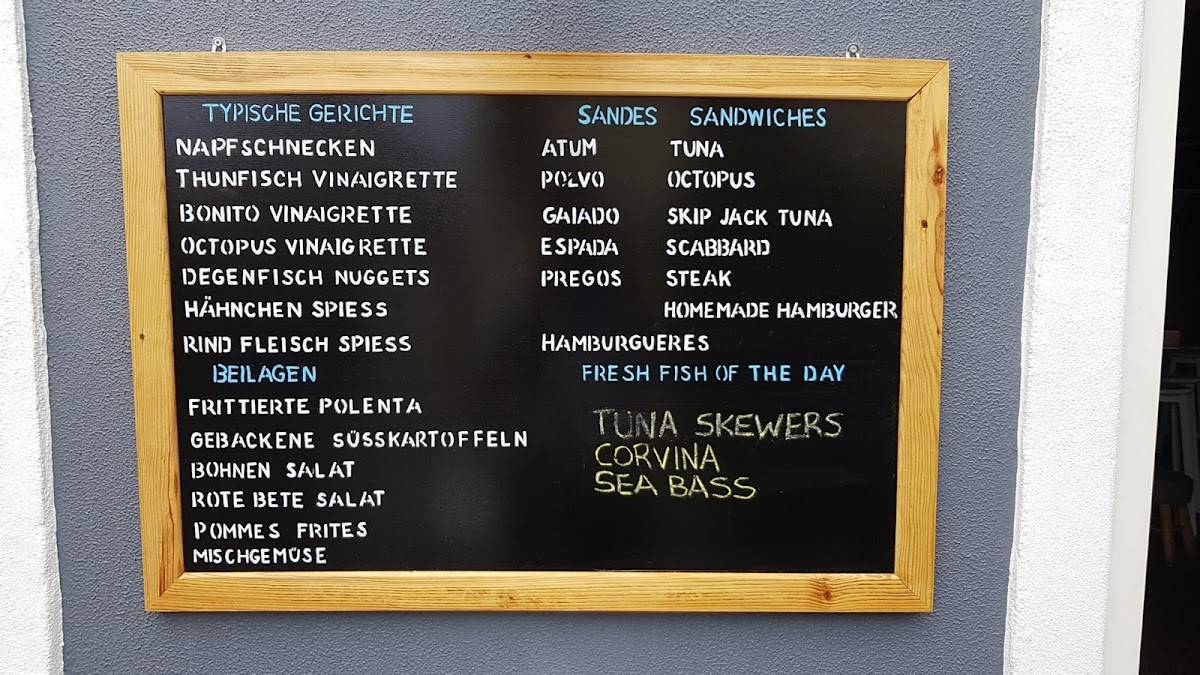 TYPISCHE GERICHTE
NAPFSCHNECKEN
THUNFISCH VINAIGRETTE
BONITO VINAIGRETTE
OCTOPUS VINAIGRETTE
DEGENFISCH NUGGETS
HÄHNCHEN SPIESS
RIND FLEISCH SPIESS
BEILAGEN
FRITTIERTE POLENTA
GEBACKENE SÜSSKARTOFFELN
BOHNEN SALAT
ROTE BETE SALAT
POMMES FRITES
MISCHGEMÜSE
SANDES SANDWICHES
ATUM TUNA
POLVO OCTOPUS
GAIADO SKIP JACK TUNA
ESPADA SCABBARD
PREGOS STEAK
HOMEMADE HAMBURGER
HAMBURGUERES
FRESH FISH OF THE DAY
TUNA SKEWERS
CORVINA
SEA BASS